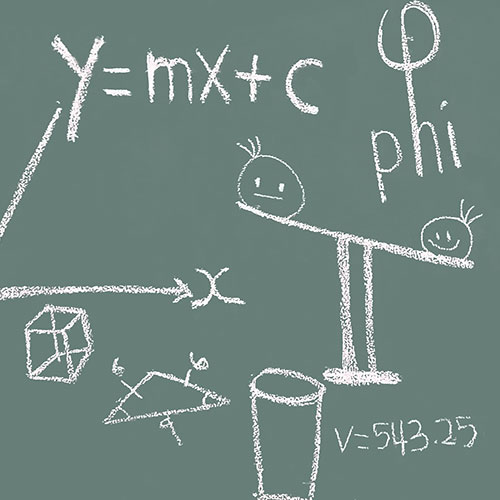 y=mx+c
φ
phi
x
6 6
9
v=543.25